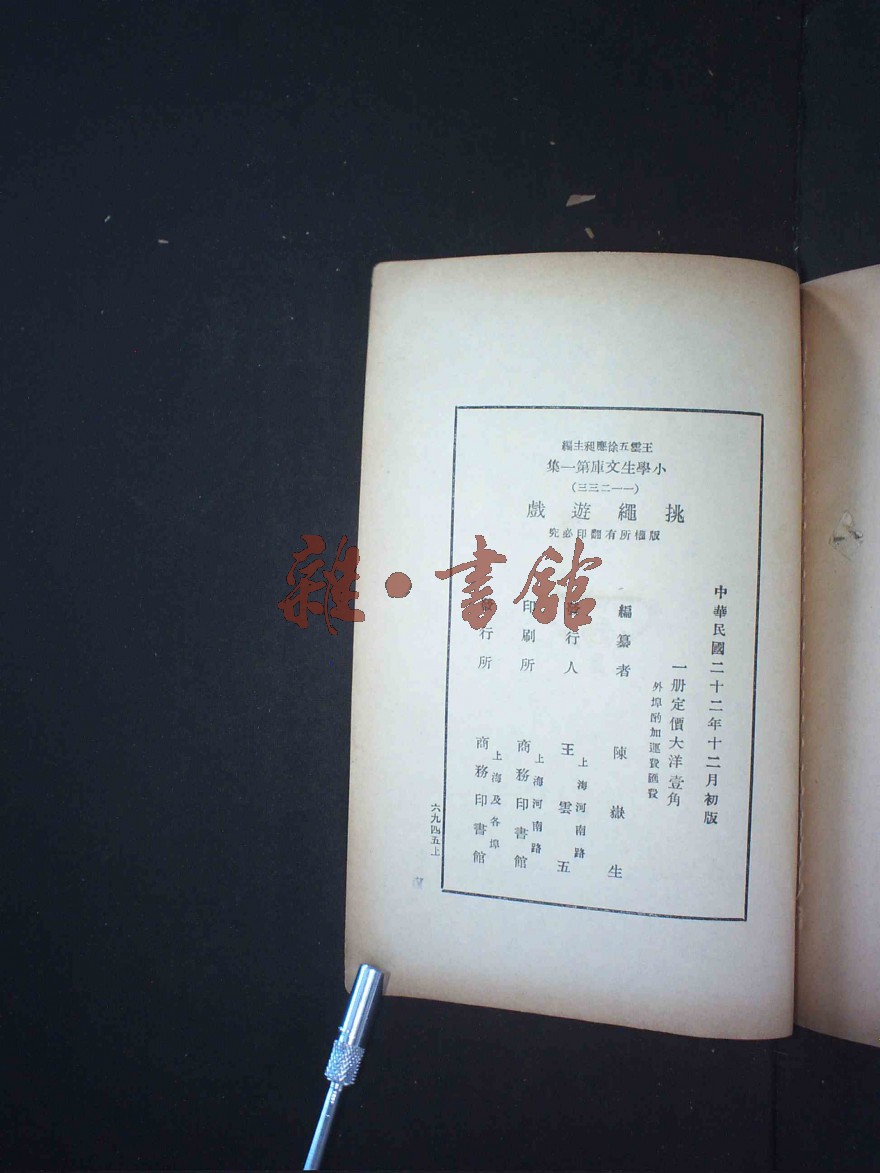 王雲五徐應昶主編
小學生文庫第一集
(一一二三三)
挑繩遊戲
版權所有翻印必究
中華民國二十二年十二月初版
一册定價大洋壹角
外埠酌加運費匯費
編纂者 陳嶽生
發行人 上海河南路
王雲五
印刷所 上海河南路
商務印書館
發行所 上海及各埠
商務印書館
六九四五上
雜·書館